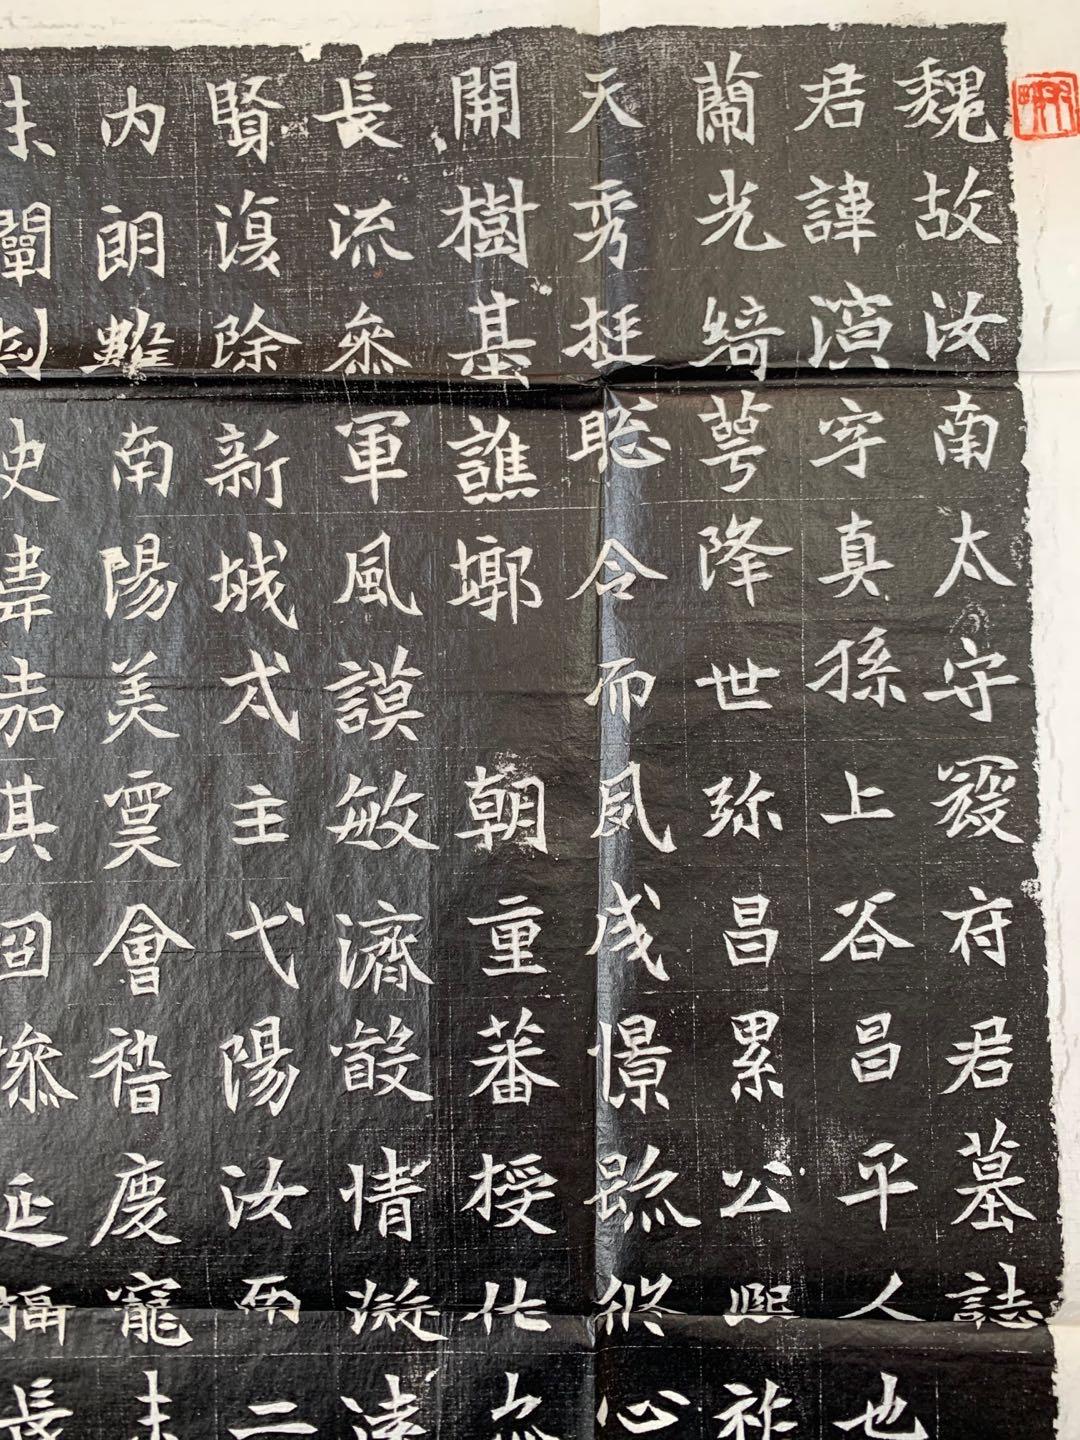 魏故汝南太守寇府君墓誌
君諱演字真孫上谷昌平人也
蘭光綺萼降世弥昌累公熙祚
天秀挺聡令而夙成憬踪倏心
開樹基譙墎朝重蕃授作
長流叅軍風謨敏濟情凝遠
賢復除新城太主弋陽汝南二
内朗雖南陽美會慶寵未
闡史嘉其固延長